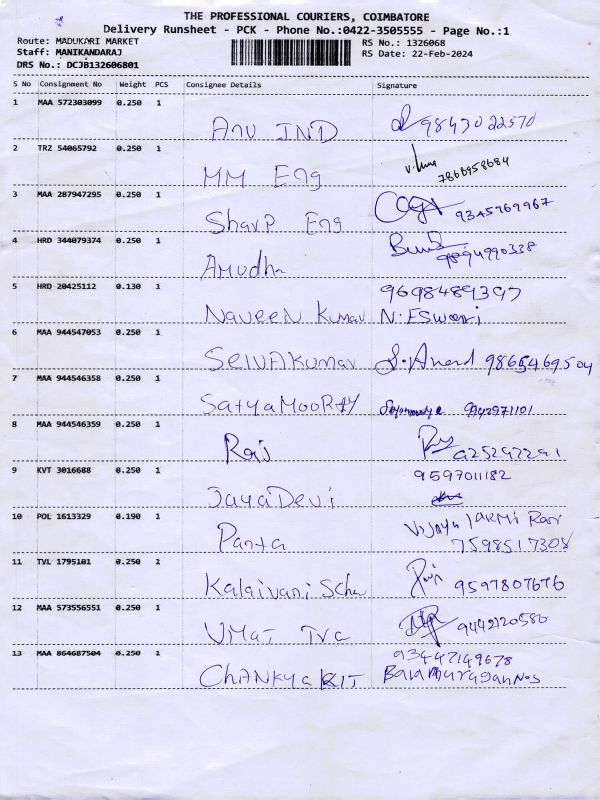 THE PROFESSIONAL COURIERS, COIMBATORE
Delivery Runsheet - PCK - Phone No.:0422-3505555 - Page No.:1
Route: MADUKARI MARKET
Staff: MANIKANDARAJ
DRS No.: DCJB132606801
RS No.: 1326068
RS Date: 22-Feb-2024
S No Consignment No Weight PCS Consignee Details Signature
1 MAA 572303099 0.250 1
Anu IND 9843022570
2 TRZ 54065792 0.250 1
MM Eng 7866958684
3 MAA 287947295 0.250 1
Sharp Eng 9345769967
4 HRD 344079374 0.250 1
Amudha 9894990338
5 HRD 20425112 0.130 1
9698489397
Naveen Kumar N. ESwari
6 MAA 944547053 0.250 1
Selvakumar S. Anand 9865469504
7 MAA 944546358 0.250 1
SatyaMooRty 9942971101
8 MAA 944546359 0.250 1
Raj 925292291
9 KVT 3016688 0.250 1
9597011182
JayaDevi
10 POL 1613329 0.190 1
Vijaya laxmi
7598517308
11 TVL 1795101 0.250 1
Kalaivani 9597807676
12 MAA 573556551 0.250 1
UMai 9442120580
13 MAA 864687504 0.250 1
93447149678
Chankya Balamurugan